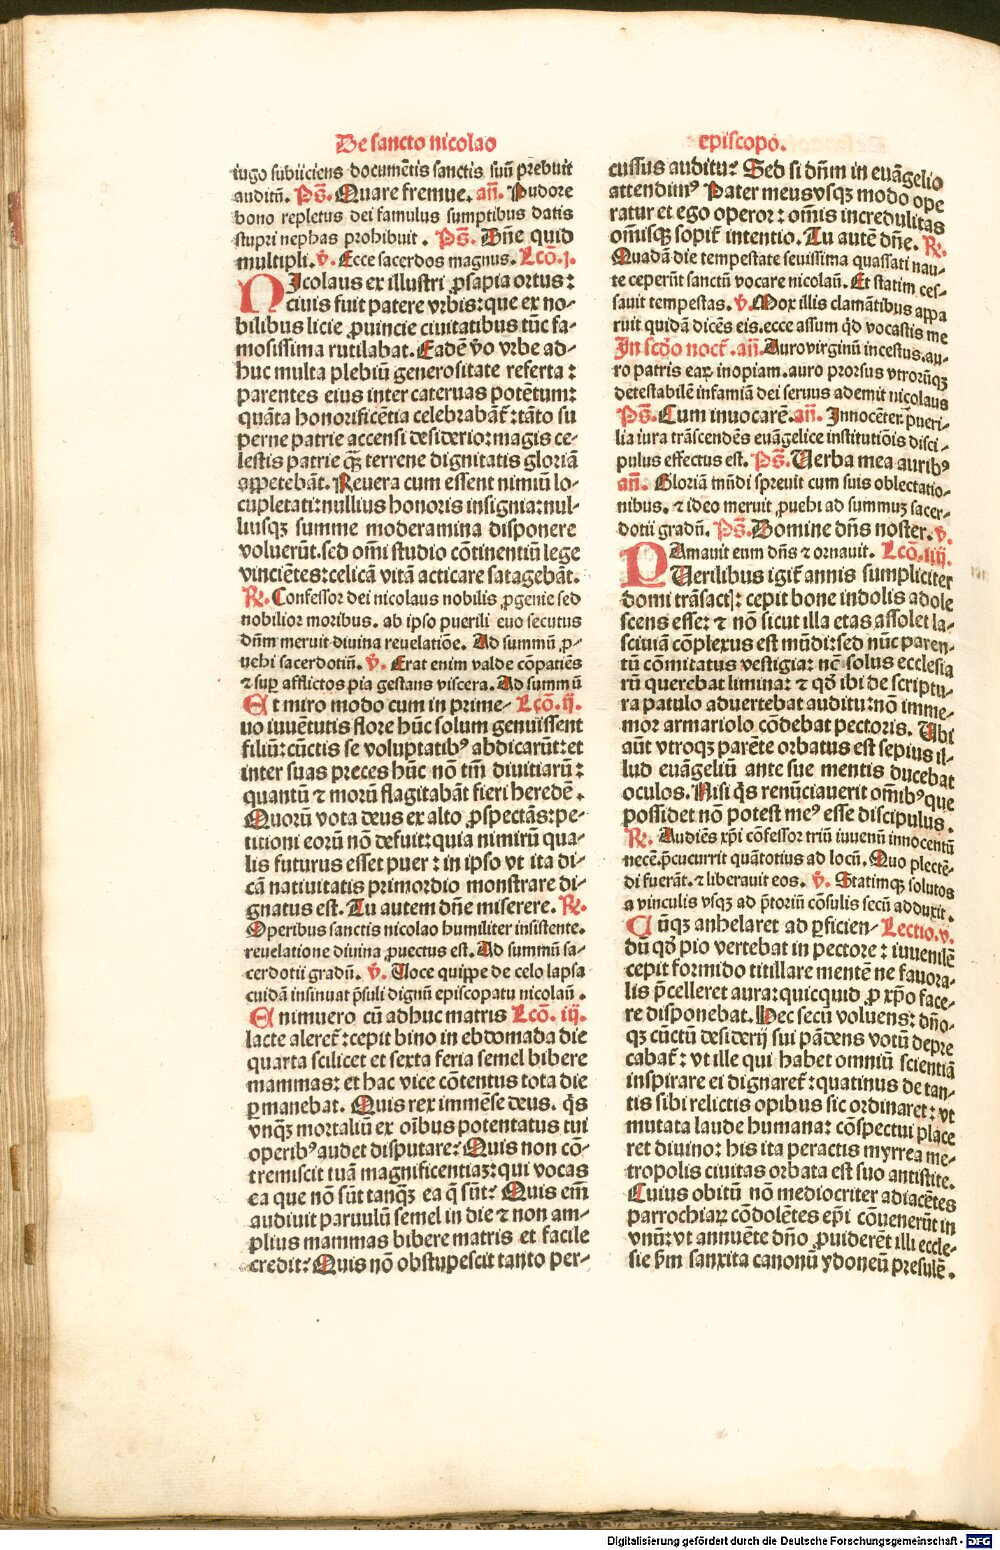 De sancto nicolao
iugo subiiciens documētis sanctis suū prebuit
auditū. Ps̄. Quare fremue. an̄. Pudore
bono repletus dei famulus sumptibus datis
stupri nephas prohibuit. Ps̄. Dn̄e quid
multipli. v̄. Ecce sacerdos magnus. Lcō.j.
NIcolaus ex illustri ꝓsapia ortus:
ciuis fuit patere vrbis: que ex no-
bilibus licie ꝓuincie ciuitatibus tūc fa-
mosissima rutilabat. Eadē v̄o vrbe ad-
huc multa plebiū generositate referta:
parentes eius inter cateruas potētum:
quāta honorificētia celebrabāt̄: tāto su
perne patrie accensi desiderio: magis ce-
lestis patrie qȝ̄ terrene dignitatis gloriā
appetebāt. Reuera cum essent nimiū lo-
cupletati: nullius honoris insignia: nul-
liusqȝ summe moderamina disponere
voluerūt. sed om̄i studio cōtinentiū lege
vinciētes: celicā vitā acticare satagebāt.
R. Confessor dei nicolaus nobilis ꝓgenie sed
nobilior moribus. ab ipso puerili euo secutus
dn̄m meruit diuina reuelatiōe. Ad summū ꝓ-
uehi sacerdotiū. v̄. Erat enim valde cōpatiēs
⁊ suꝑ afflictos pia gestans viscera. Ad summū
Et miro modo cum in prime- Lcō.ij.
uo iuuētutis flore hūc solum genuissent
filiū: cūctis se voluptatibꝰ abdicarūt: et
inter suas preces hūc nō tm̄ diuitiarū:
quantū ⁊ morū flagitabāt fieri heredē.
Quorū vota deus ex alto ꝓspectās: pe-
titioni eorū nō defuit: quia nimirū qua-
lis futurus esset puer: in ipso vt ita di-
cā natiuitatis primordio monstrare di-
gnatus est. Tu autem dn̄e miserere. R.
Operibus sanctis nicolao humiliter insistente.
reuelatione diuina ꝓuectus est. Ad summū sa-
cerdotii gradū. v̄. Uoce quippe de celo lapsa
cuidā insinuat p̄suli dignū episcopatu nicolaū.
Enimuero cū adhuc matris Lcō. iij.
lacte aleret̄: cepit bino in ebdomada die
quarta scilicet et sexta feria semel bibere
mammas: et hac vice cōtentus tota die
ꝑmanebat. Quis rex immēse deus. qs̄
vnqȝ mortaliū ex oībus potentatus tui
operibꝰ audet disputare? Quis non cō-
tremiscit tuā magnificentiaȝ: qui vocas
ea que nō sūt tanqȝ ea q̄ sūt? Quis em̄
audiuit paruulū semel in die ⁊ non am-
plius mammas bibere matris et facile
credit? Quis nō obstupescit tanto per-
episcopo.
cussus auditu? Sed si dn̄m in euāgelio
attendimꝰ Pater meus vsqȝ modo ope
ratur et ego operor: om̄is incredulitas
om̄isqȝ sopit̄ intentio. Tu autē dn̄e. R.
Quadā die tempestate seuissima quassati nau-
te ceperūt sanctū vocare nicolaū. Et statim ces-
sauit tempestas. v̄. Mox illis clamātibus appa
ruit quidā dicēs eis. ecce assum qd̄ vocastis me
In scd̄o noct̄. an̄. Auro virginū incestus. au-
ro patris eaꝝ inopiam. auro prorsus vtrorūqȝ
detestabilē infamiā dei seruus ademit nicolaus
Ps̄. Cum inuocarē. an̄. Innocēter pueri-
lia iura trāscendēs euāgelice institutiōis disci-
pulus effectus est. Ps̄. Uerba mea auribꝰ
an̄. Gloriā mūdi spreuit cum suis oblectatio-
nibus. ⁊ ideo meruit ꝓuehi ad summuȝ sacer-
dotii gradū. Ps̄. Domine dn̄s noster. v̄.
Amauit eum dn̄s ⁊ ornauit. Lcō.iiij.
PUerilibus igit̄ annis simpliciter
domi trāsactꝭ: cepit bone indolis adole
scens esse: ⁊ nō sicut illa etas assolet la-
sciuiā cōplexus est mūdi: sed nūc paren-
tū cōmitatus vestigia: nc̄ solus ecclesia
rū querebat limina: ⁊ qd̄ ibi de scriptu-
ra patulo aduertebat auditu: nō imme-
mor armariolo cōdebat pectoris. Ubi
aūt vtroqȝ parēte orbatus est sepius il-
lud euāgeliū ante sue mentis ducebat
oculos. Nisi qs̄ renūciauerit om̄ibꝰ que
possidet nō potest meꝰ esse discipulus.
R. Audiēs xp̄i cōfessor triū iuuenū innocentū
necē. p̄cucurrit quātotius ad locū. Quo plectē-
di fuerāt. ⁊ liberauit eos. v̄. Statimqȝ solutos
a vinculis vsqȝ ad p̄toriū cōsulis secū adduxit.
Cūqȝ anhelaret ad ꝑficien- Lectio.v.
dū qd̄ pio vertebat in pectore: iuuenilē
cepit formido titillare mentē ne fauora-
lis p̄celleret aura: quicquid ꝓ xp̄o face-
re disponebat. Hec secū voluens: dn̄o-
qȝ cūctū desiderij sui pādens votū depre
cabat̄: vt ille qui habet omniū scientiā
inspirare ei dignaret̄: quatinus de tan-
tis sibi relictis opibus sic ordinaret: vt
mutata laude humana: cōspectui place
ret diuino: his ita peractis myrrea me-
tropolis ciuitas orbata est suo antistite.
Cuius obitū nō mediocriter adiacētes
parrochiaꝝ cōdolētes ep̄i cōuenerūt in
vnū: vt annuēte dn̄o ꝓuiderēt illi eccle-
sie ꝑm sanxita canonū ydoneū presulē.
Digitalisierung gefördert durch die Deutsche Forschungsgemeinschaft - DFG